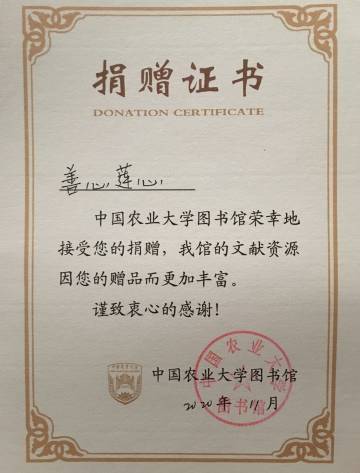 捐赠证书
DONATION CERTIFICATE
善心莲心
中国农业大学图书馆荣幸地
接受您的捐赠，我馆的文献资源
因您的赠品而更加丰富。
谨致衷心的感谢！
中国农业大学图书馆
2020年 11月
中国农业大学
图书馆